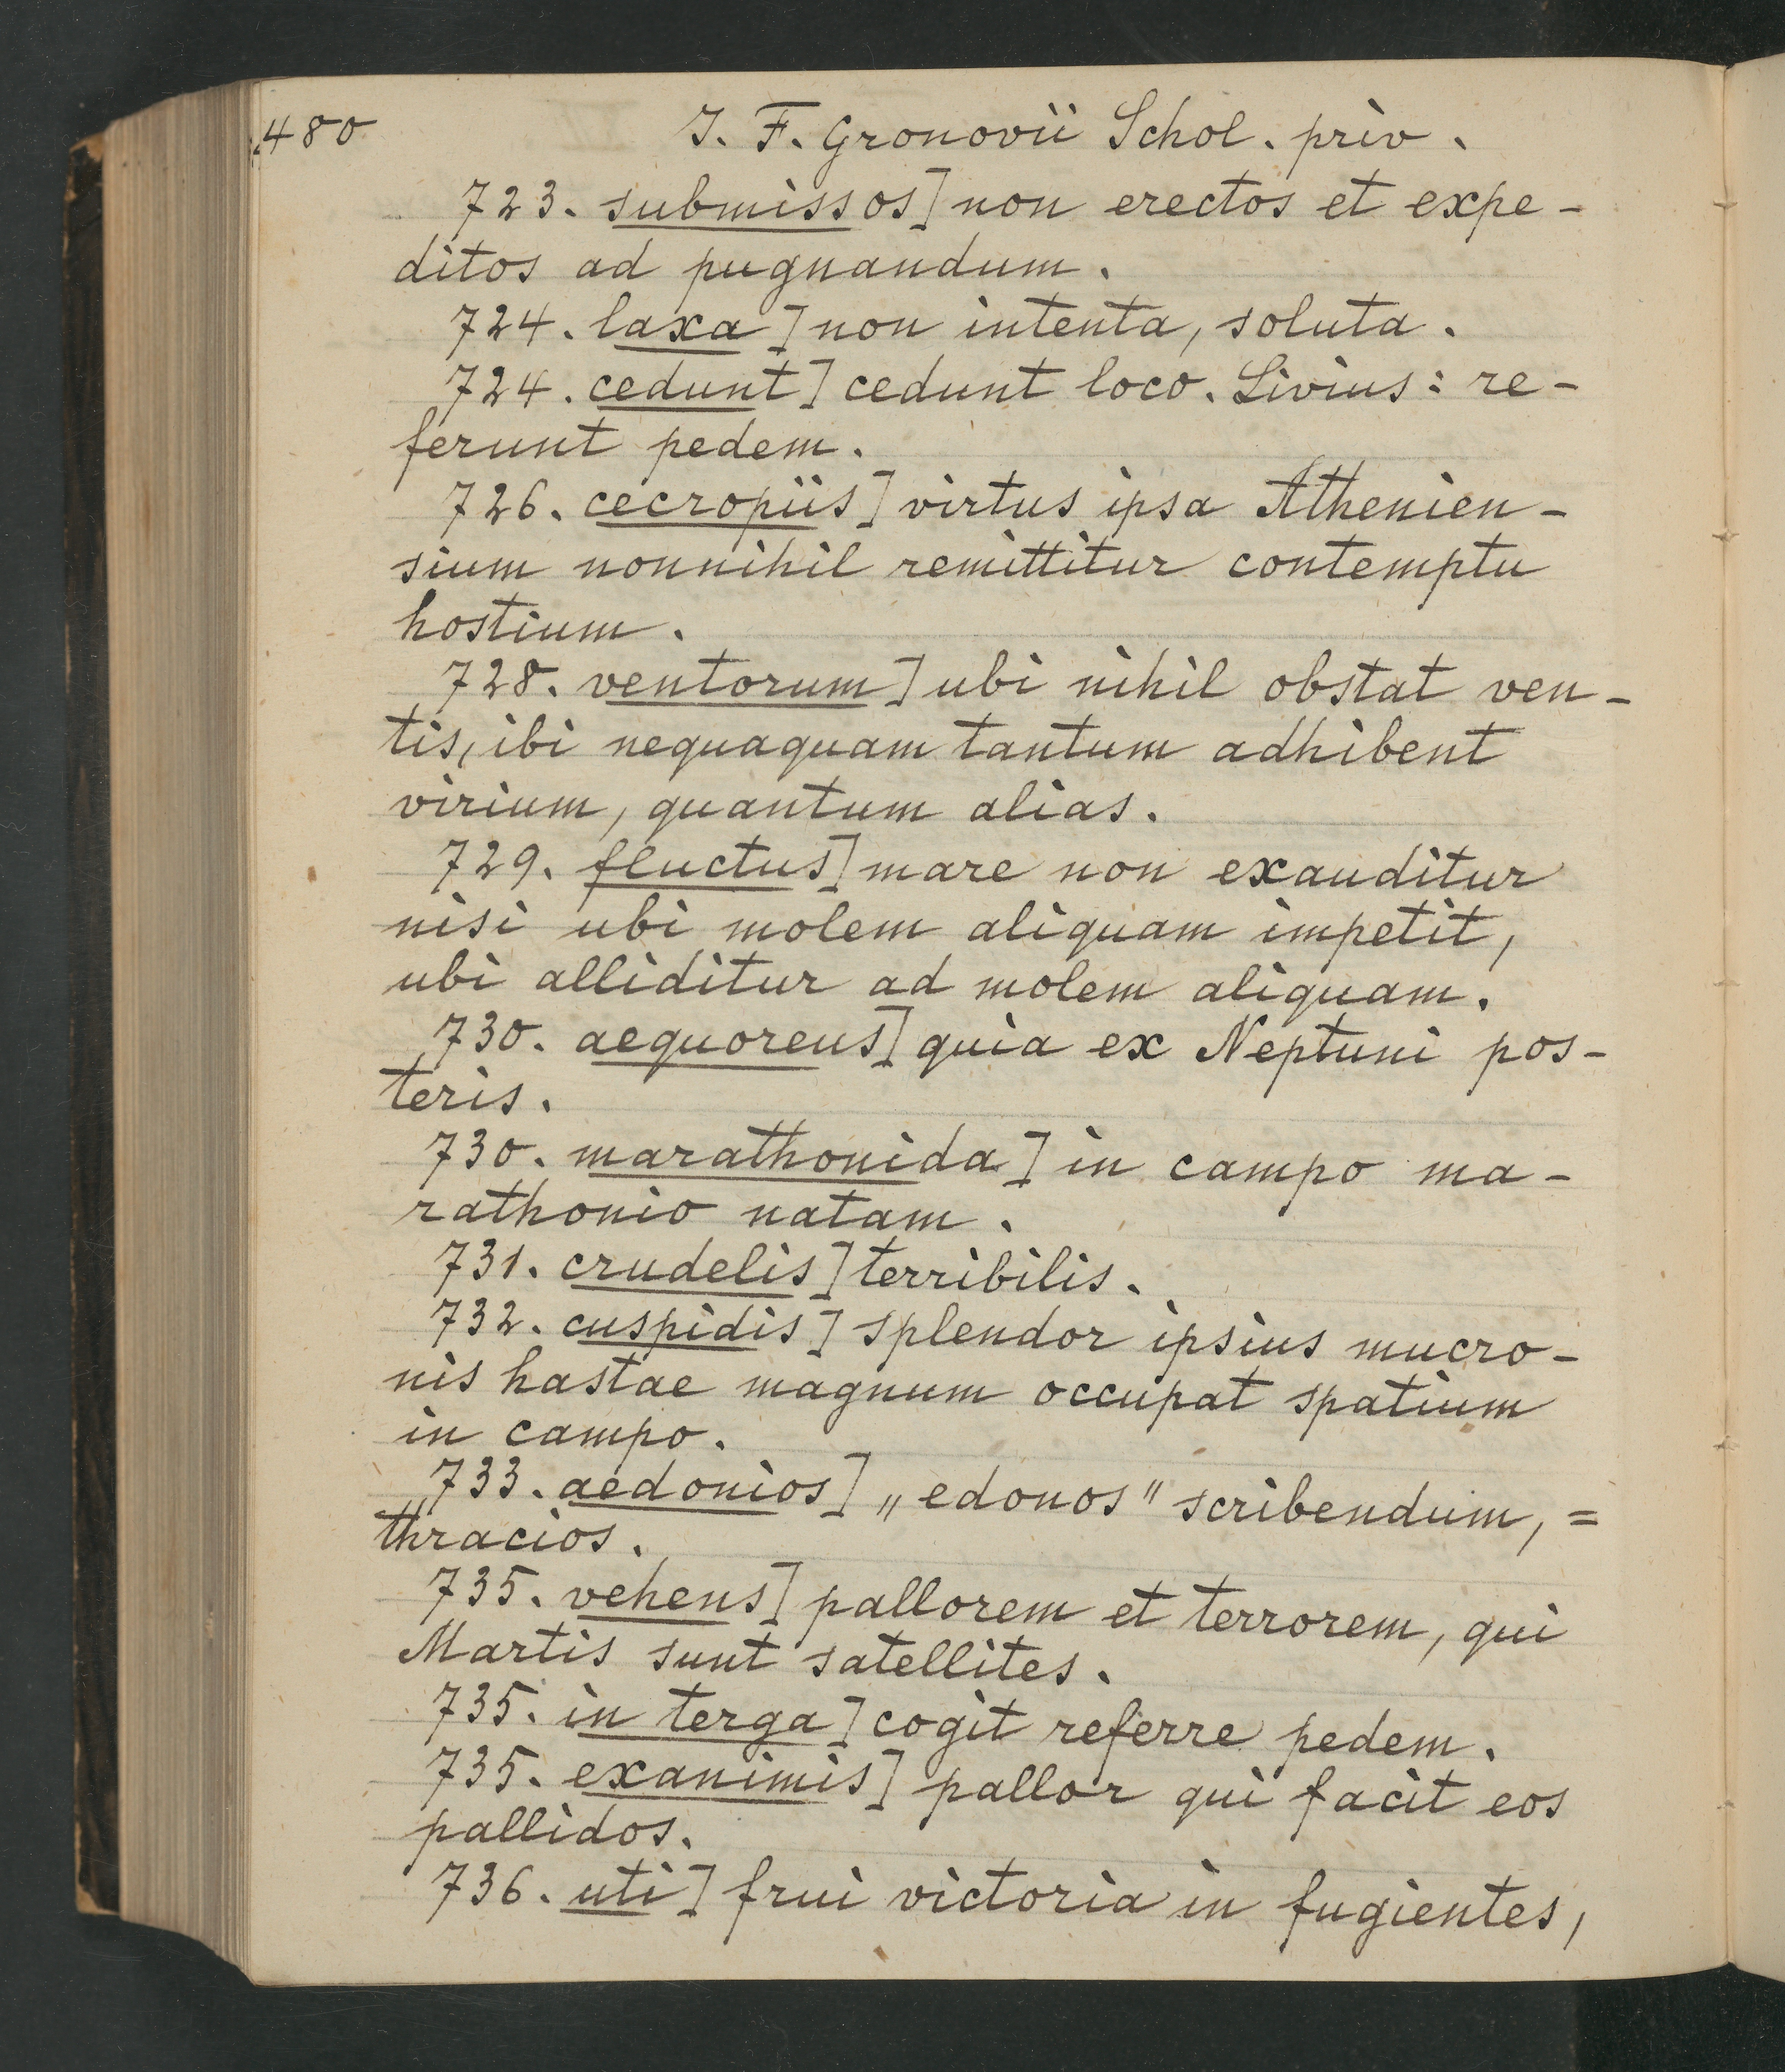 480
J. F. Gronovii Schol. priv.
723. submissos] non erectos et expe-
ditos ad pugnandum.
724. laxa] non intenta, soluta.
724. cedunt] cedunt loco. Livius: re-
ferunt pedem.
726. cecropiis] virtus ipsa Athenien-
sium nonnihil remittitur contemptu
hostium.
728. ventorum] ubi nihil obstat ven-
tis, ibi nequaquam tantum adhibent
virium, quantum alias.
729. fluctus] mare non exauditur
nisi ubi molem aliquam impetit,
ubi alliditur ad molem aliquam.
730. aequoreus] quia ex Neptuni pos-
teris.
730. marathonida] in campo ma-
rathonio natam.
731. crudelis] terribilis.
732. cuspidis] splendor ipsius mucro-
nis hastae magnum occupat spatium
in campo.
733. aedonios] „edonos" scribendum, =
thracios.
735. vehens] pallorem et terrorem, qui
Martis sunt satellites.
735. in terga] cogit referre pedem.
735. exanimis] pallor qui facit eos
pallidos.
736. uti] frui victoria in fugientes,